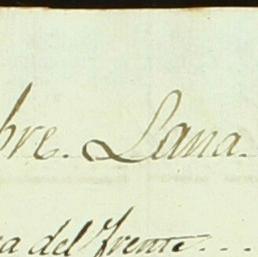 bre. Lana.
a del frente...